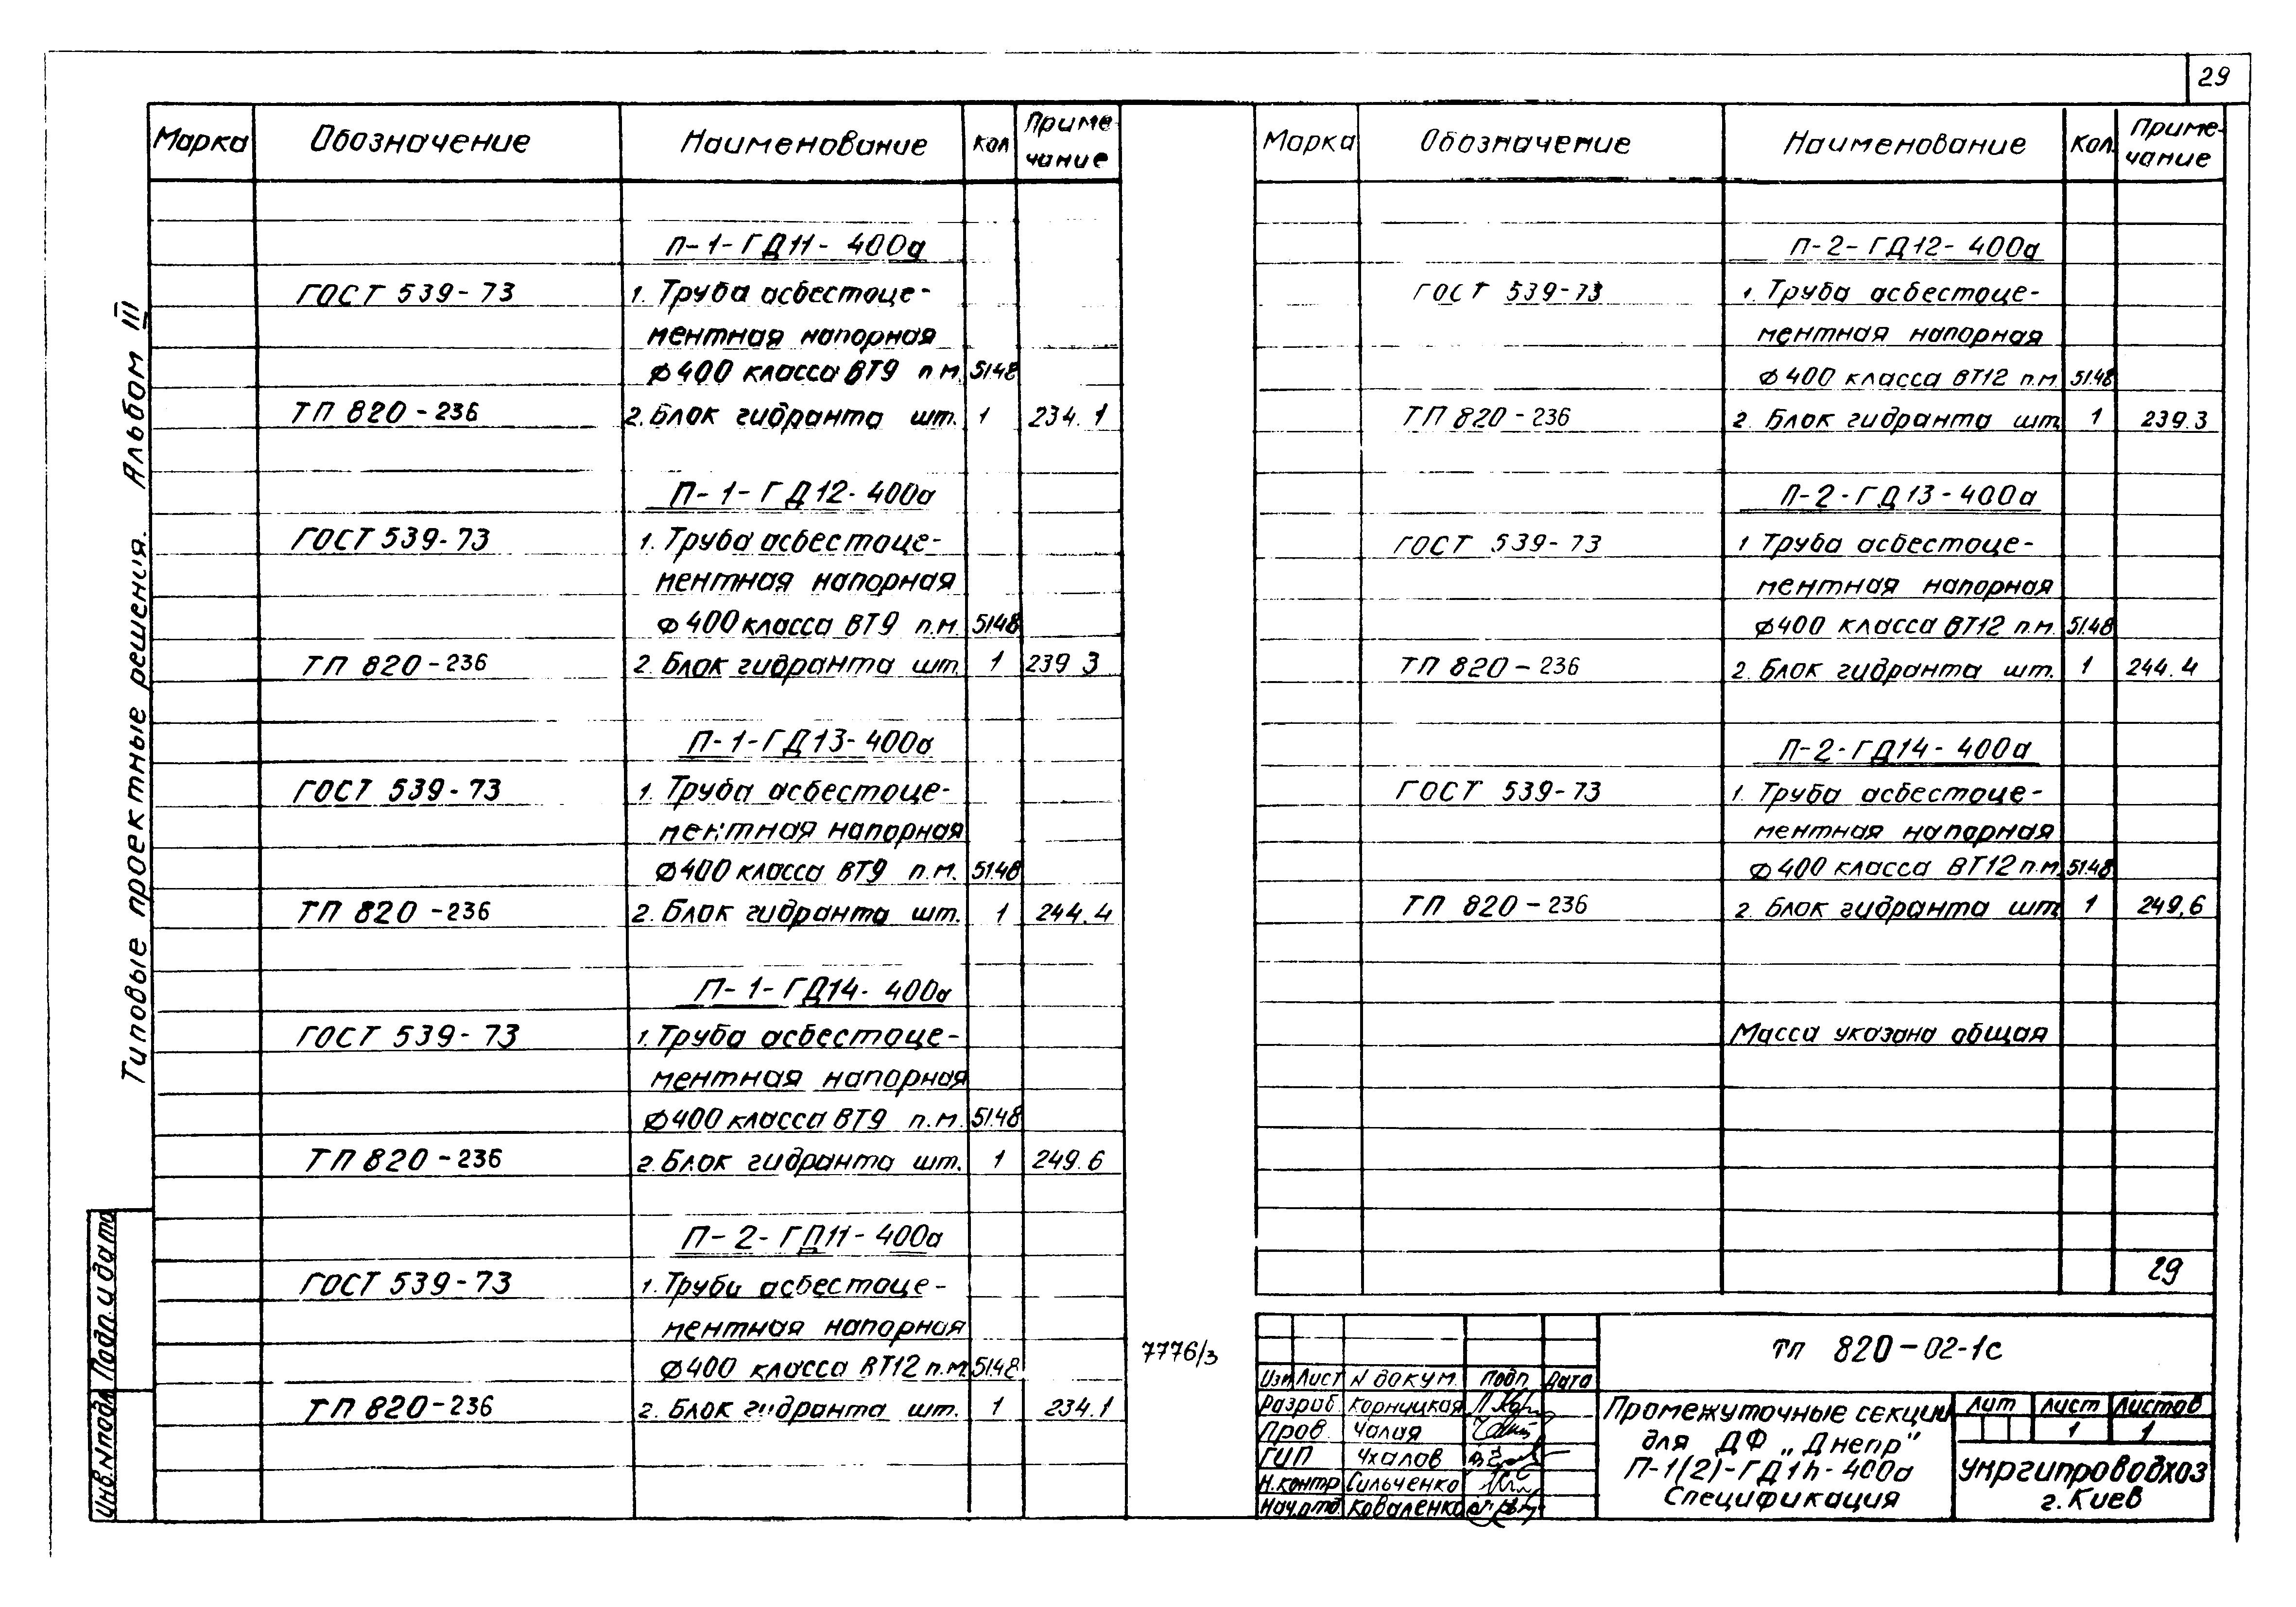 29
Марка Обозначение Наименование Кол Приме-
чание
П-1-ГД11-400а
ГОСТ 539-73 1. Труба асбестоце-
ментная напорная
ф400 класса ВТ9 п.м. 51.48
ТП 820-236 2. Блок гидранта шт. 1 234.1
П-1-ГД12-400а
ГОСТ 539-73 1. Труба асбестоце-
ментная напорная
ф400 класса ВТ9 п.м. 51.48
ТП 820-236 2. Блок гидранта шт. 1 239.3
П-1-ГД13-400а
ГОСТ 539-73 1. Труба асбестоце-
ментная напорная
ф400 класса ВТ9 п.м. 51.48
ТП 820-236 2. Блок гидранта шт. 1 244.4
П-1-ГД14-400а
ГОСТ 539-73 1. Труба асбестоце-
ментная напорная
ф400 класса ВТ9 п.м. 51.48
ТП 820-236 2. Блок гидранта шт. 1 249.6
П-2-ГД11-400а
ГОСТ 539-73 1. Труба асбестоце-
ментная напорная
ф400 класса ВТ12 п.м. 51.48
ТП 820-236 2. Блок гидранта шт. 1 234.1
Марка Обозначение Наименование Кол. Приме-
чание
П-2-ГД12-400а
ГОСТ 539-73 1. Труба асбестоце-
ментная напорная
ф400 класса ВТ12 п.м. 51.48
ТП 820-236 2. Блок гидранта шт. 1 239.3
П-2-ГД13-400а
ГОСТ 539-73 1 Труба асбестоце-
ментная напорная
ф400 класса ВТ12 п.м. 51.48
ТП 820-236 2. Блок гидранта шт. 1 244.4
П-2-ГД14-400а
ГОСТ 539-73 1. Труба асбестоце-
ментная напорная
ф400 класса ВТ12 п.м. 51.48
ТП 820-236 2. Блок гидранта шт. 1 249,6
Масса указана общая
29
Типовые проектные решения. Альбом III
Подп. и дата
Инв.N подл
7776/3
ТП 820-02-1с
Изм Лист N докум. Подп Дата
Разраб Корницкая
Пров. Чалая
ГИП Чхалов
Н.контр Сильченко
Нач.отд. Коваленко
Промежуточные секции
для ДФ „Днепр"
П-1(2)-ГД1n-400а
Спецификация
Лит Лист Листов
1 1
Укргипроводхоз
г. Киев